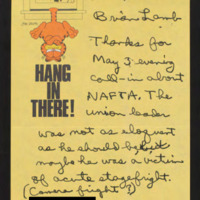 Brian Lamb
Thanks for
May 3 evening
call-in about
NAFTA. The
union leader
HANG
IN
THERE!
was not as eloquent
as he should be,
maybe he was a victim
of acute stagefright.
(Camera fright?)